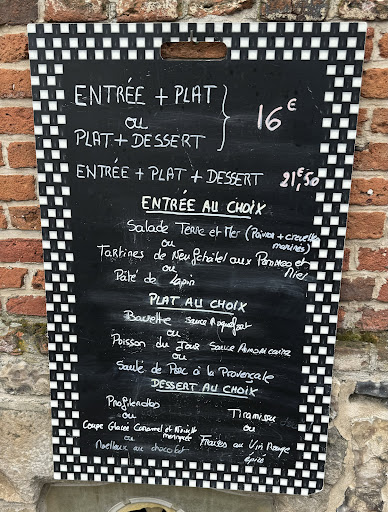 ENTRÉE + PLAT
ou
PLAT + DESSERT
16€
ENTRÉE + PLAT + DESSERT 21€,50
ENTRÉE AU CHOIX
Salade Terre et Mer (Poivron + crevettes
marinés)
ou
Tartines de Neufchâtel aux Pommes et
Miel
ou
Pâté de Lapin
PLAT AU CHOIX
Bavette sauce Roquefort
ou
Poisson du Jour sauce Armoricaine
ou
Sauté de Porc à la Provençale
DESSERT AU CHOIX
Profiteroles Tiramisu
ou ou
Coupe Glacée Caramel et Vanille Fraises au Vin Rouge
meringuée épicé
ou
Moelleux au chocolat